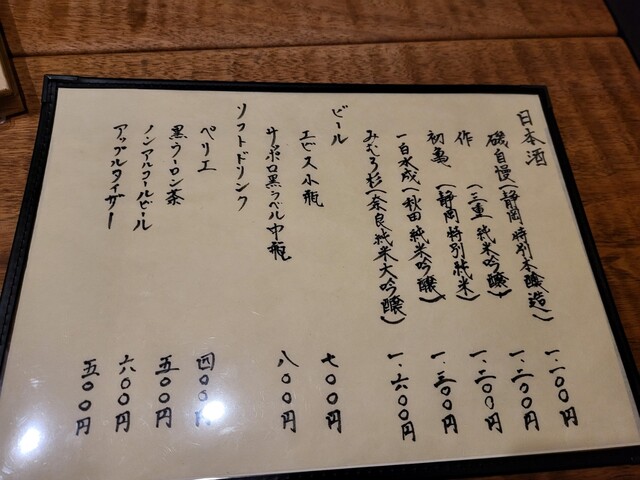 日本酒
磯自慢(静岡 特別本醸造) 一.一〇〇円
作 (三重 純米吟醸) 一.二〇〇円
初亀 (静岡 特別純米) 一.二〇〇円
一白水成(秋田 純米吟醸) 一.三〇〇円
みむろ杉(奈良 純米大吟醸) 一.六〇〇円
ビール
ヱビス小瓶 七〇〇円
サッポロ黒ラベル中瓶 八〇〇円
ソフトドリンク
ペリエ 四〇〇円
黒ウーロン茶 五〇〇円
ノンアルコールビール 六〇〇円
アップルタイザー 五〇〇円